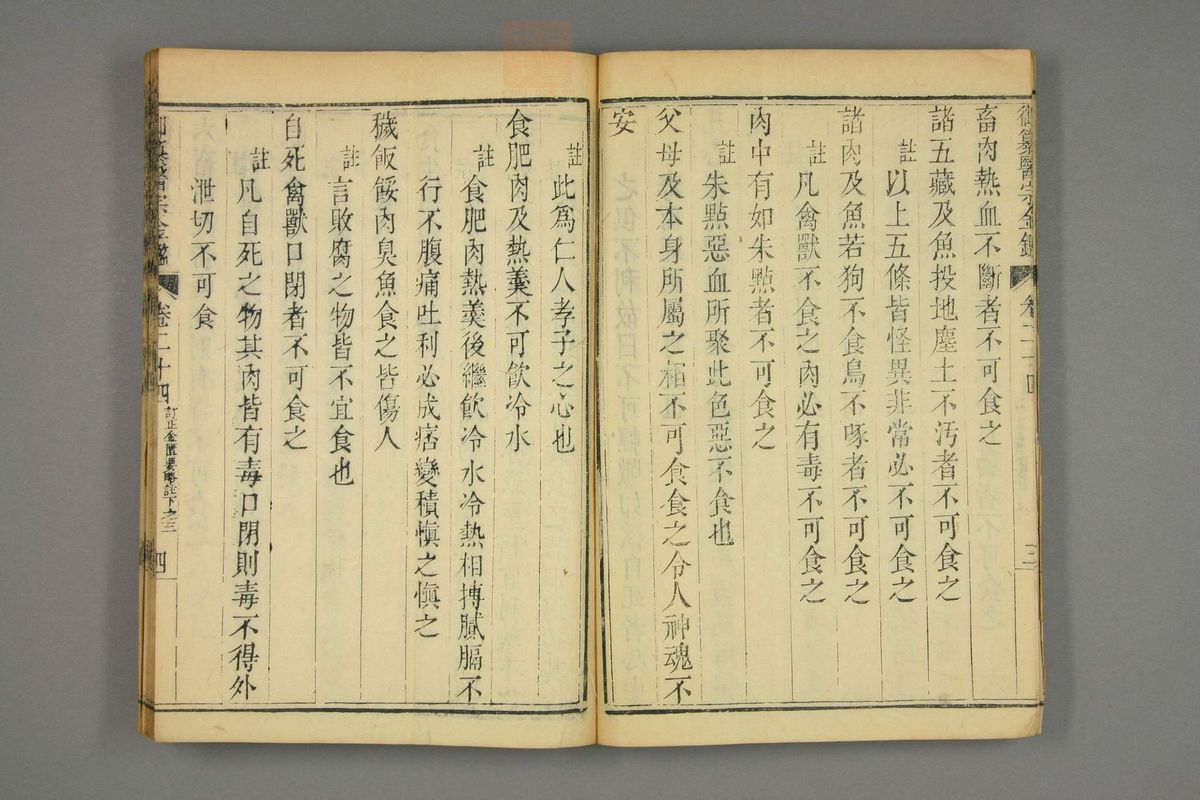 御纂醫宗金鑑 卷二十四 三
畜肉熱血不斷者不可食之
諸五藏及魚投地塵土不汚者不可食之
註以上五條皆怪異非常必不可食之
諸肉及魚若狗不食鳥不啄者不可食之
註凡禽獸不食之肉必有毒不可食之
肉中有如朱點者不可食之
註朱點惡血所聚此色惡不食也
父母及本身所屬之相不可食食之令人神魂不
安
註此為仁人孝子之心也
食肥肉及熱羹不可飲冷水
註食肥肉熱羹後繼飲冷水冷熱相搏膩膈不
行不腹痛吐利必成痞變積慎之慎之
穢飯餒肉臭魚食之皆傷人
註言敗腐之物皆不宜食也
自死禽獸口閉者不可食之
註凡自死之物其肉皆有毒口閉則毒不得外
泄切不可食
御纂醫宗金鑑 卷二十四 訂正金匱要略註下之三 四